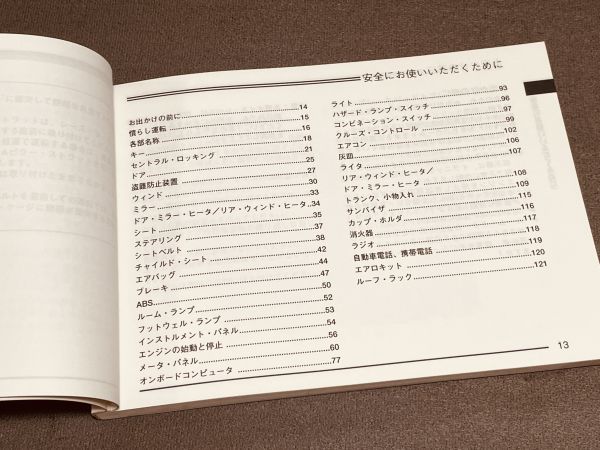 安全にお使いいただくために
お出かけの前に................................14
慣らし運転................................15
各部名称................................16
キー................................18
セントラル・ロッキング................................21
ドア................................25
盗難防止装置................................27
ウィンド................................30
ミラー................................33
ドア・ミラー・ヒータ/リア・ウィンド・ヒータ..34
シート................................35
ステアリング................................37
シートベルト................................38
チャイルド・シート................................42
エアバッグ................................44
ブレーキ................................47
ABS................................50
ルーム・ランプ................................52
フットウェル・ランプ................................53
インストルメント・パネル................................54
エンジンの始動と停止................................56
メータ・パネル................................60
オンボードコンピュータ................................77
ライト................................93
ハザード・ランプ・スイッチ................................96
コンビネーション・スイッチ................................97
クルーズ・コントロール................................99
エアコン................................102
灰皿................................106
ライタ................................107
リア・ウィンド・ヒータ/
ドア・ミラー・ヒータ................................108
トランク、小物入れ................................109
サンバイザ................................115
カップ・ホルダ................................116
消火器................................117
ラジオ................................118
自動車電話、携帯電話................................119
エアロキット................................120
ルーフ・ラック................................121
13